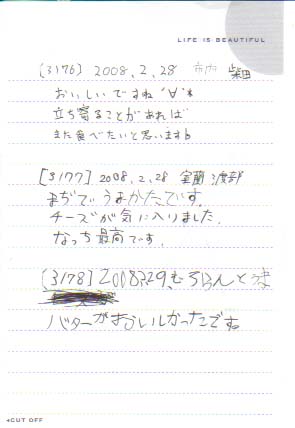 LIFE IS BEAUTIFUL
[3176] 2008.2.28 市内 柴田
おいしいですね
立ち寄ることがあれば
また食べたいと思います
[3177] 2008.2.28 室蘭 渡部
まぢでうまかたです。
チーズが気に入りました。
なっち最高です。
[3178] 2008 2 29 むろらんとう
バターがおいしかったですね
CUT OFF